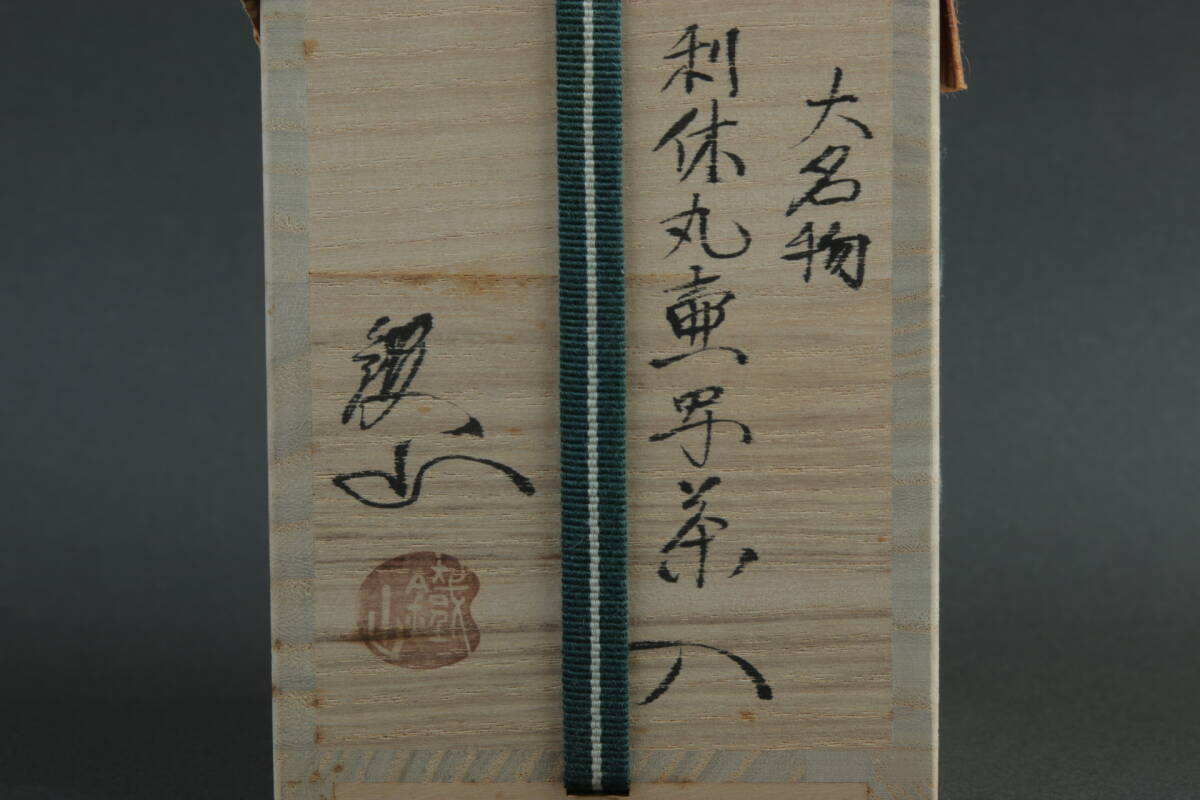 大名物
利休丸壷写茶入
鐵山
鐵山